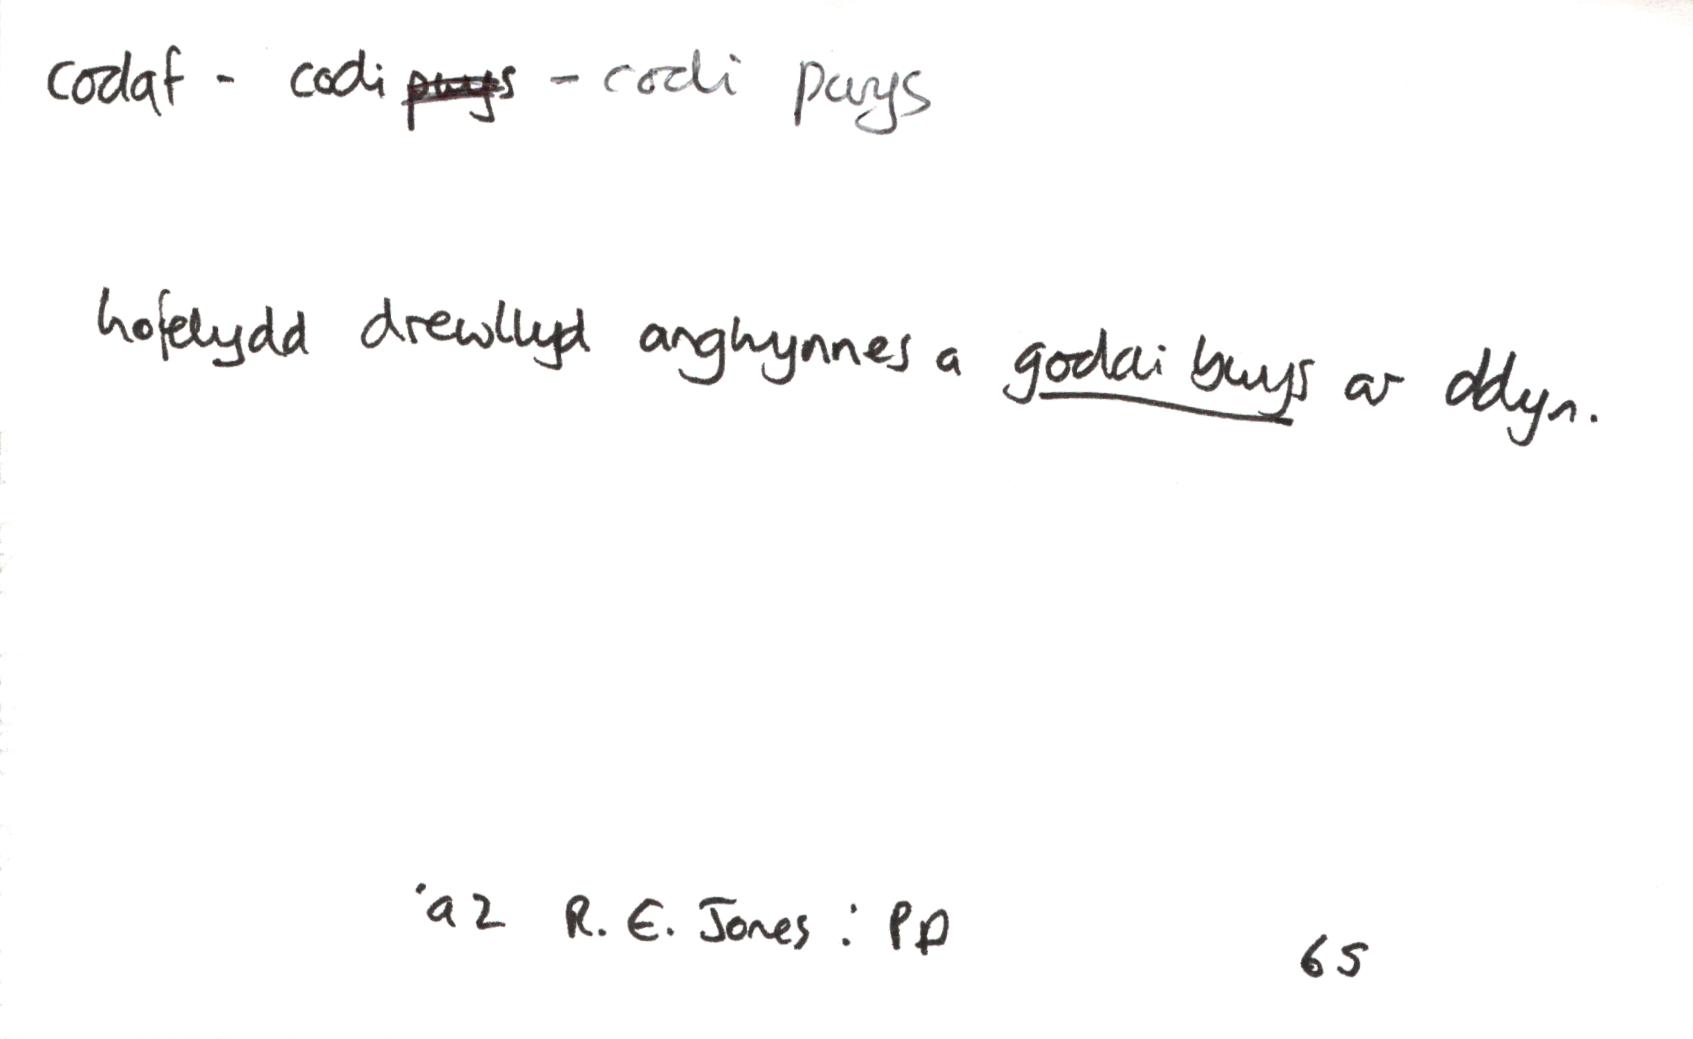 codaf - codi pwys - codi pwys
hofelydd drewllyd anghynnes a godai bwys ar ddyn.
'92 R. E. Jones : PD
65